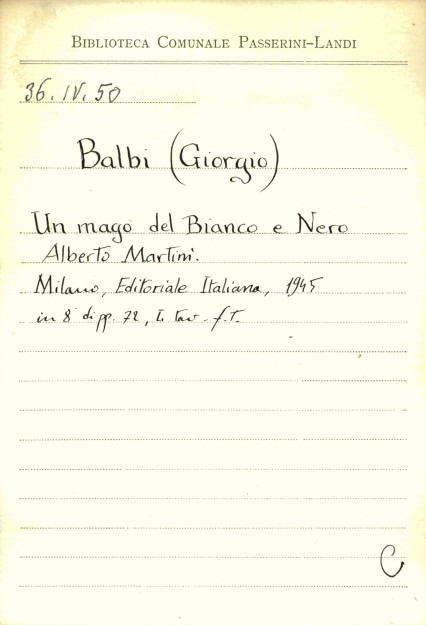 BIBLIOTECA COMUNALE PASSERINI-LANDI
36.IV.50
Balbi (Giorgio)
Un mago del Bianco e Nero
Alberto Martini.
Milano, Editoriale Italiana, 1945
in 8° di pp. 72, tav. f.T.
C